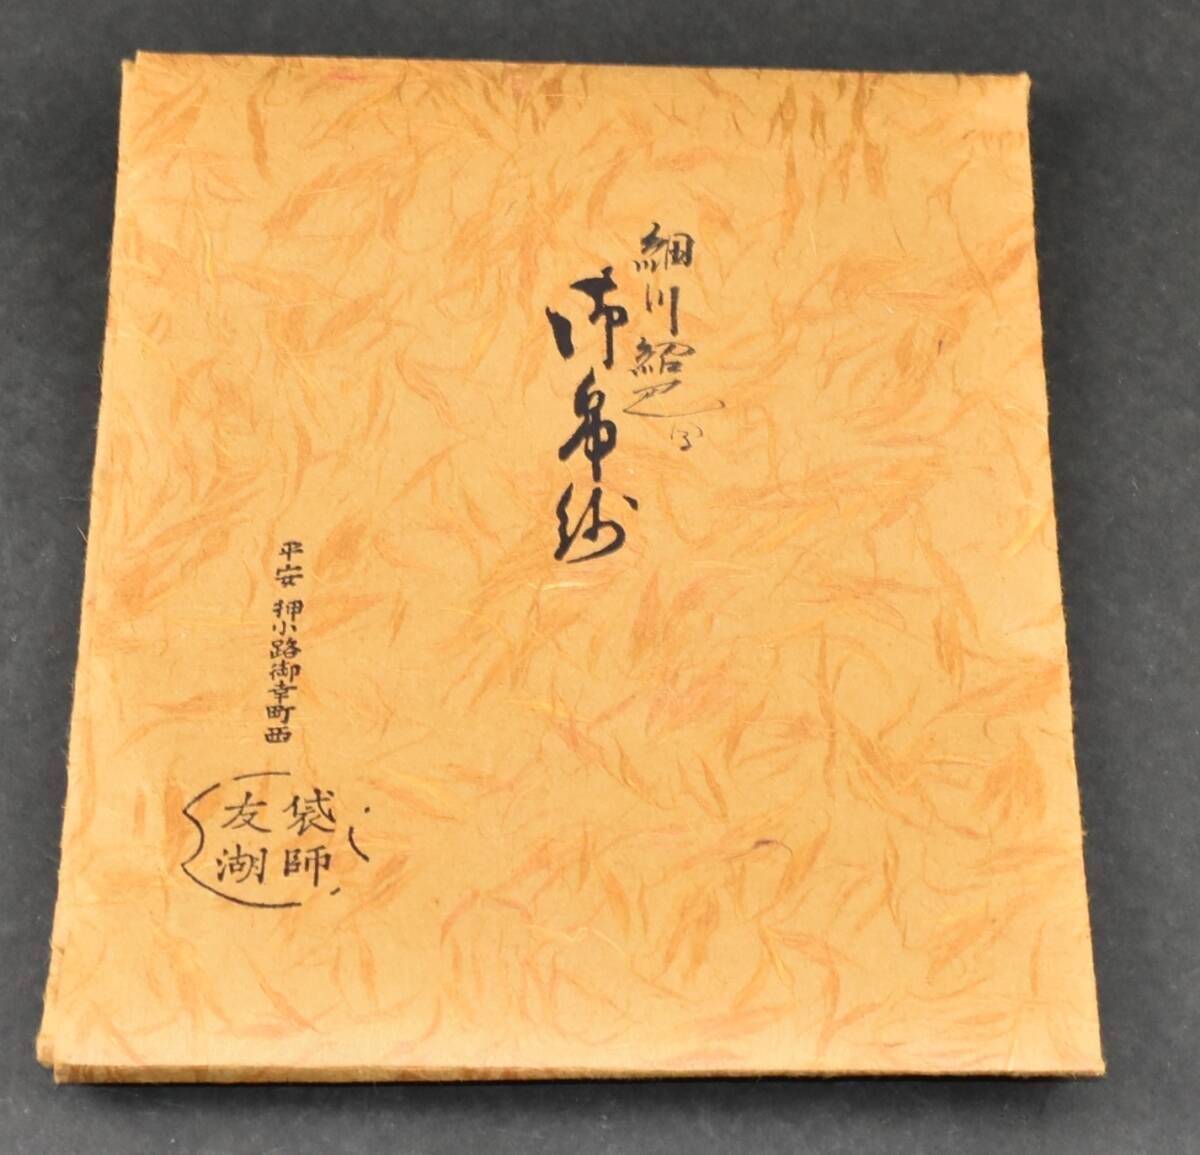 細川紹巴写
御帛紗
平安 押小路御幸町西
袋師
友湖